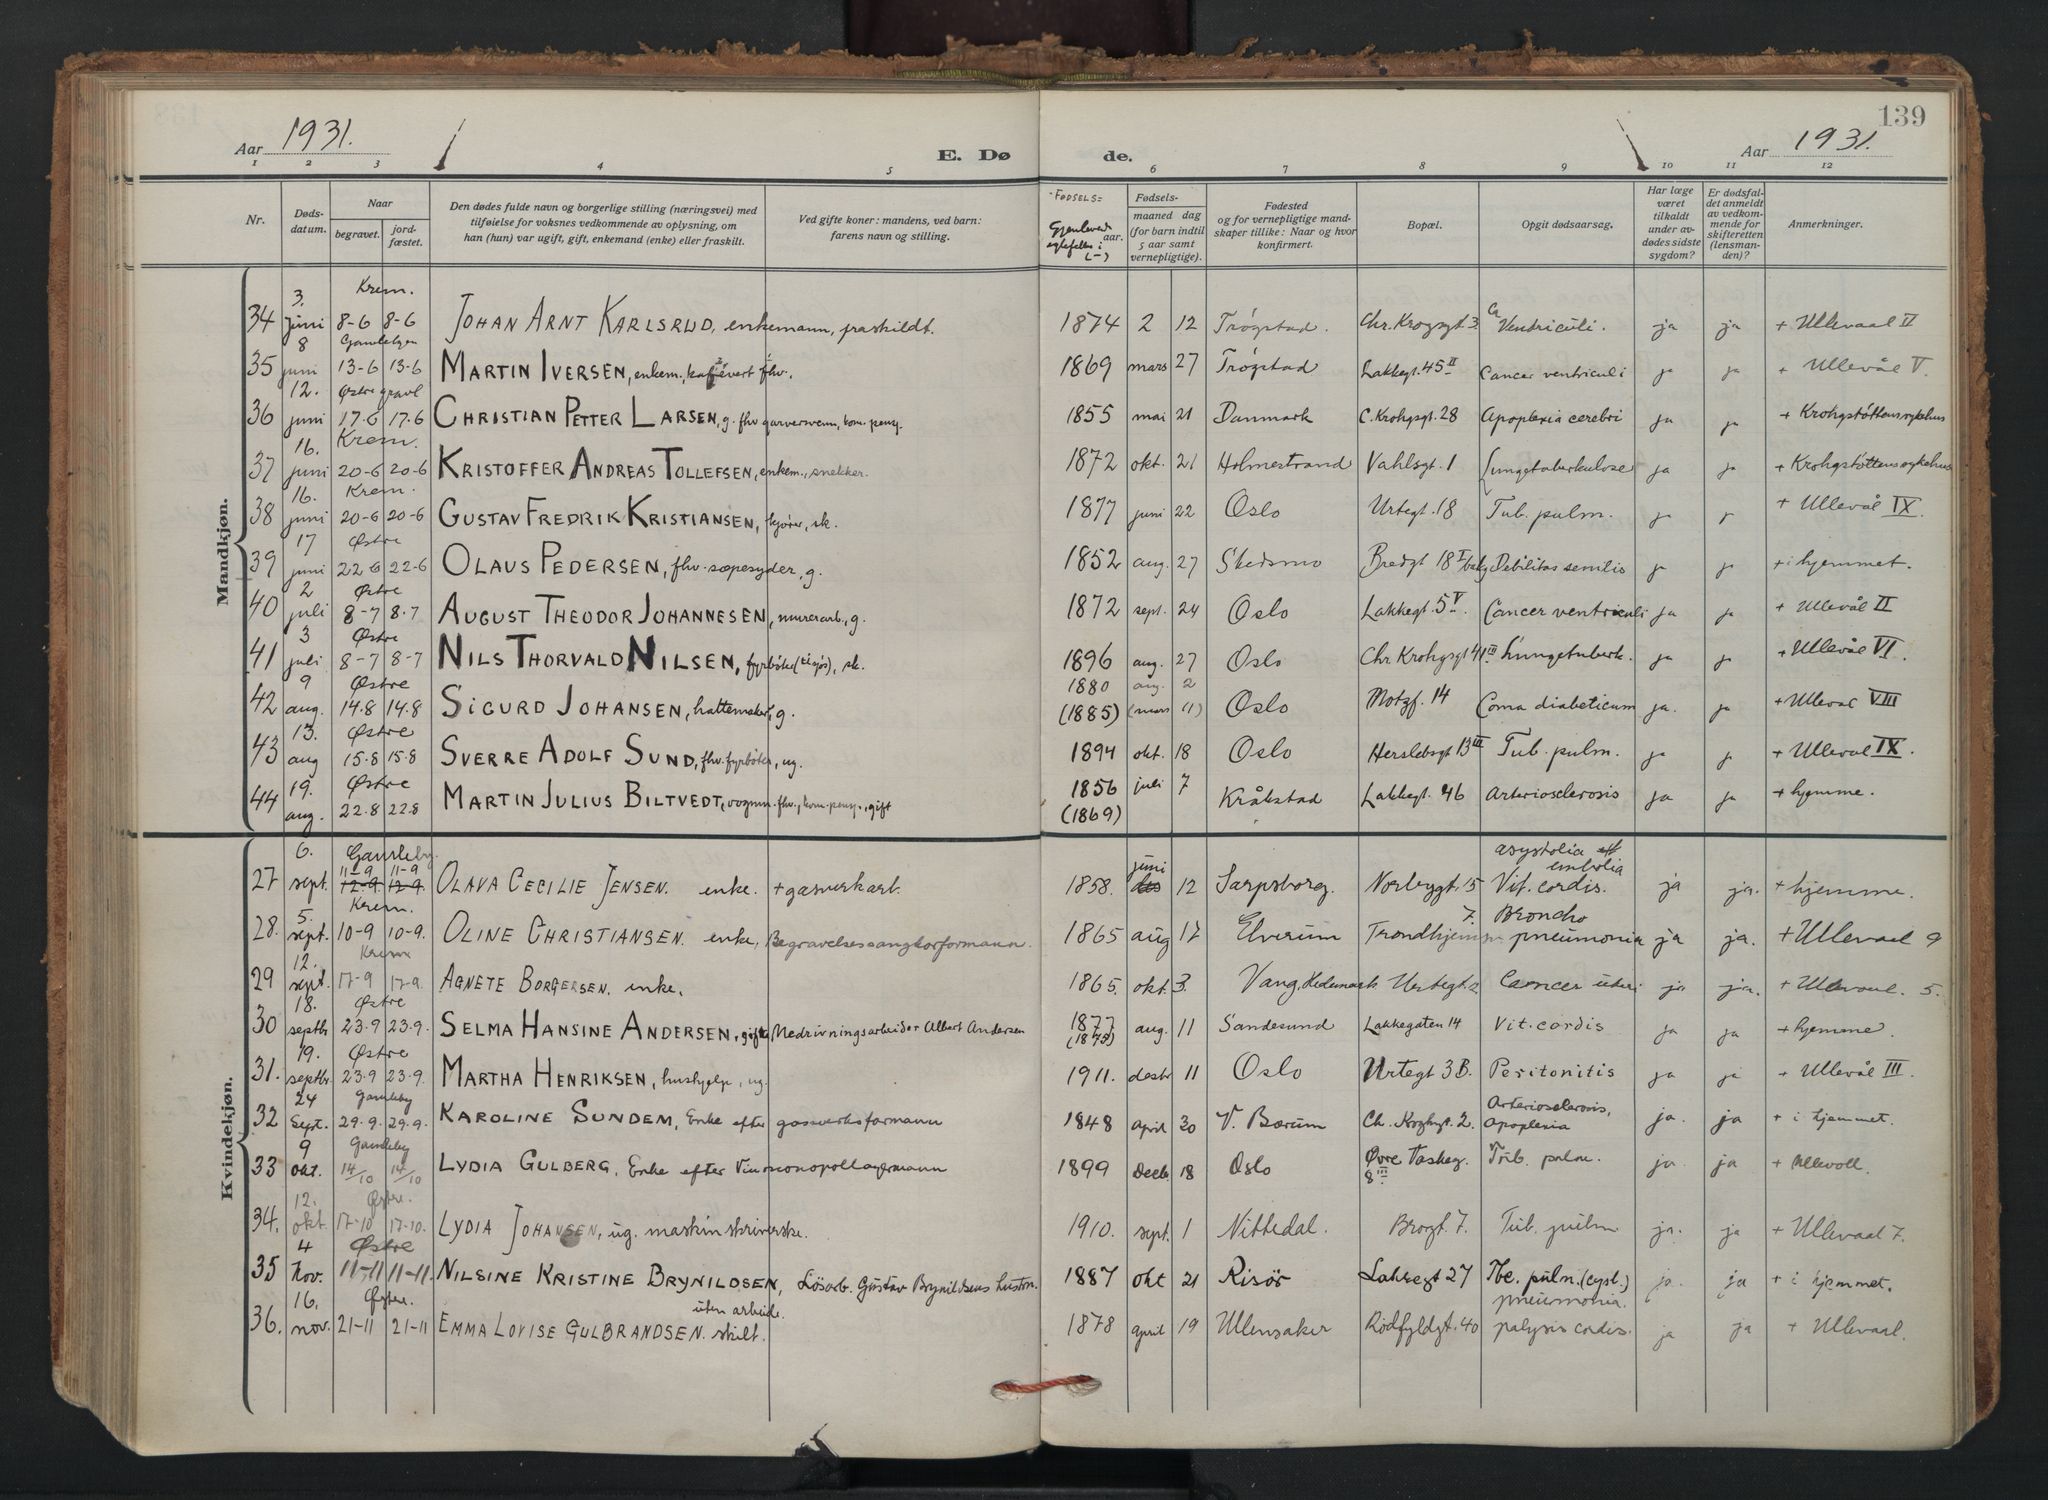 139
Aar 1931.
E. Døde.
Aar 1931.
1 2 3 4 5 6 7 8 9 10 11 12
Nr.
Døds-datum.
Naar
begravet.
jord-fæstet.
Den dødes fulde navn og borgerlige stilling (næringsvei) med
tilføielse for voksnes vedkommende av oplysning, om
han (hun) var ugift, gift, enkemand (enke) eller fraskilt.
Ved gifte koner: mandens, ved barn:
farens navn og stilling.
Fødsels-aar.
Gjenlevende ektefelles i (–)
Fødsels-
maaned dag
(for barn indtil
5 aar samt
vernepligtige).
Fødested
og for vernepligtige mand-
skaper tillike: Naar og hvor
konfirmert.
Bopæl.
Opgit dødsaarsag.
Har læge
været
tilkaldt
under av-
dødes sidste
sygdom?
Er dødsfal-
det anmeldt
av vedkom-
mende for
skifteretten
(lensman-
den)?
Anmerkninger.
Mandkjøn.
34 3. juni Krem. 8-6 8-6 Johan Arnt Karlsrud, enkemann, fraskildt. 1874 2 12 Trøgstad. Chr. Krogsgt 3 Ca Ventriculi. ja ja + Ullevaal II
35 8 juni Gamlebyen 13-6 13-6 Martin Iversen, enkem., fhv. 1869 mars 27 Trøgstad Lakkegt. 45 II Cancer ventriculi ja ja + Ullevål V.
36 12. juni Østre gravl 17-6 17-6 Christian Petter Larsen, g. fhv garversvenn, kom. pensj. 1855 mai 21 Danmark C. Krohgsgt. 28 Apoplexia cerebri ja ja + Krohgstøttens sykehus
37 16. juni Krem. 20-6 20-6 Kristoffer Andreas Tollefsen, enkem., snekker. 1872 okt. 21 Holmestrand Vahlsgt. 1 Lungetuberkulose ja ja + Krohgstøttens sykehus
38 16. juni Krem. 20-6 20-6 Gustav Fredrik Kristiansen, kjører, sk. 1877 juni 22 Oslo Urtegt. 18 Tub. pulm. ja ja + Ullevål IX.
39 17 juni Østre 22-6 22-6 Olaus Pedersen, fhv. sæpesyder, g. 1852 aug. 27 Skedsmo Bredgt 18 I/bakg Debilitas senilis ja ja + i hjemmet.
40 2 juli Østre 8-7 8-7 August Theodor Johannesen, murerarb., g. 1872 sept. 24 Oslo Lakkegt. 5 V. Cancer ventriculi ja ja + Ullevål II
41 3 juli Østre 8-7 8-7 Nils Thorvald Nilsen, fyrbøter (tilsjøs), sk. 1896 aug. 27 Oslo Chr. Krohgsgt 41 III Lungetuberk. ja ja + Ullevål VI.
42 9 aug. Østre 14.8 14.8 Sigurd Johansen, hattemaker, g. 1880 (1885) aug. 2 (mars 11) Oslo Motzf. 14 Coma diabeticum ja. ja + Ullevål VIII
43 13. aug Østre 15.8 15.8 Sverre Adolf Sund, fhv. fyrbøter, ug. 1894 okt. 18 Oslo Herslebsgt 13 III Tub. pulm. ja ja + Ullevål IX.
44 19. aug. Østre 22.8 22.8 Martin Julius Biltvedt, vognm. fhv., kom. pensj., gift 1856 (1869) juli 7 Kråkstad Lakkegt. 46 Arteriosclerosis ja ja + hjemme.
Kvindekjøn.
27 6. sept. Gamleby. 11-9 11-9 12-9. 12-9. Olava Cecilie Jensen. enke. + gasverkarb. 1858. juni des 12 Sarpsborg. Norbygt. 15 asystolia embolia Vit. cordis. ja ja. + hjemme.
28. 5. sept. Krem. 10-9 10-9. Oline Christiansen. enke, Begravelsessangkorformann. 1865 aug 17 Elverum Trondhjemsv 7. Broncho pneumonia ja ja. + Ullevaal 9
29 12. sept. Krem 17-9 17-9. Agnete Borgersen. enke. 1865. okt. 3. Vang, Hedemark Urtegt. 2 Cancer uteri ja ja. + Ullevaal. 5.
30 18. septb Østre 23.9 23.9. Selma Hansine Andersen, gift Nedrivningsarbeider Albert Andersen 1877 (1875) aug. 11 Sandesund Lakkegaten 14 Vit. cordis ja ja + hjemme.
31. 19. septbr. Østre 23.9 23.9. Martha Henriksen, hushjelp, ug. 1911. desbr 11 Oslo Urtegt 3B. Peritonitis ja ja + Ullevål III.
32 24 Sept. Gamleby 29.9. 29.9. Karoline Sundem, Enke efter gasverksformann 1848 april 30 V. Bærum Ch. Krohgt. 2. Arteriosclerosis, Apoplexia ja. ja + i hjemmet.
33 9 okt. Gamleby 14/10 14/10 Lydia Gulberg, Enke efter Vinmonopollagermann 1899 decb. 18 Oslo Øvre Vaskeg. 8 III Tub. pulm. ja. ja + Ullevoll.
34. 12. okt. Østre. 17-10 17-10. Lydia Johansen, ug. maskinskriverske. 1910. sept. 1 Nittedal. Brogt. 7. Tub. pulm ja. ja + Ullevaal 7.
35 4 Nov. Østre 11-11 11-11. Nilsine Kristine Brynildsen, Løsarb. Gustav Brynildsens hustru. 1887 okt 21 Risør Lakkegt 27 Tbc. pulm. (cyst.) ja. ja + i hjemmet.
36. 16. nov. Østre. 21-11 21-11 Emma Lovise Gulbrandsen. skilt. uten arbeide. 1878 april 19 Ullensaker Rødfyldgt. 40 pneumonia. palysis cordis. ja ja + Ullevaal.